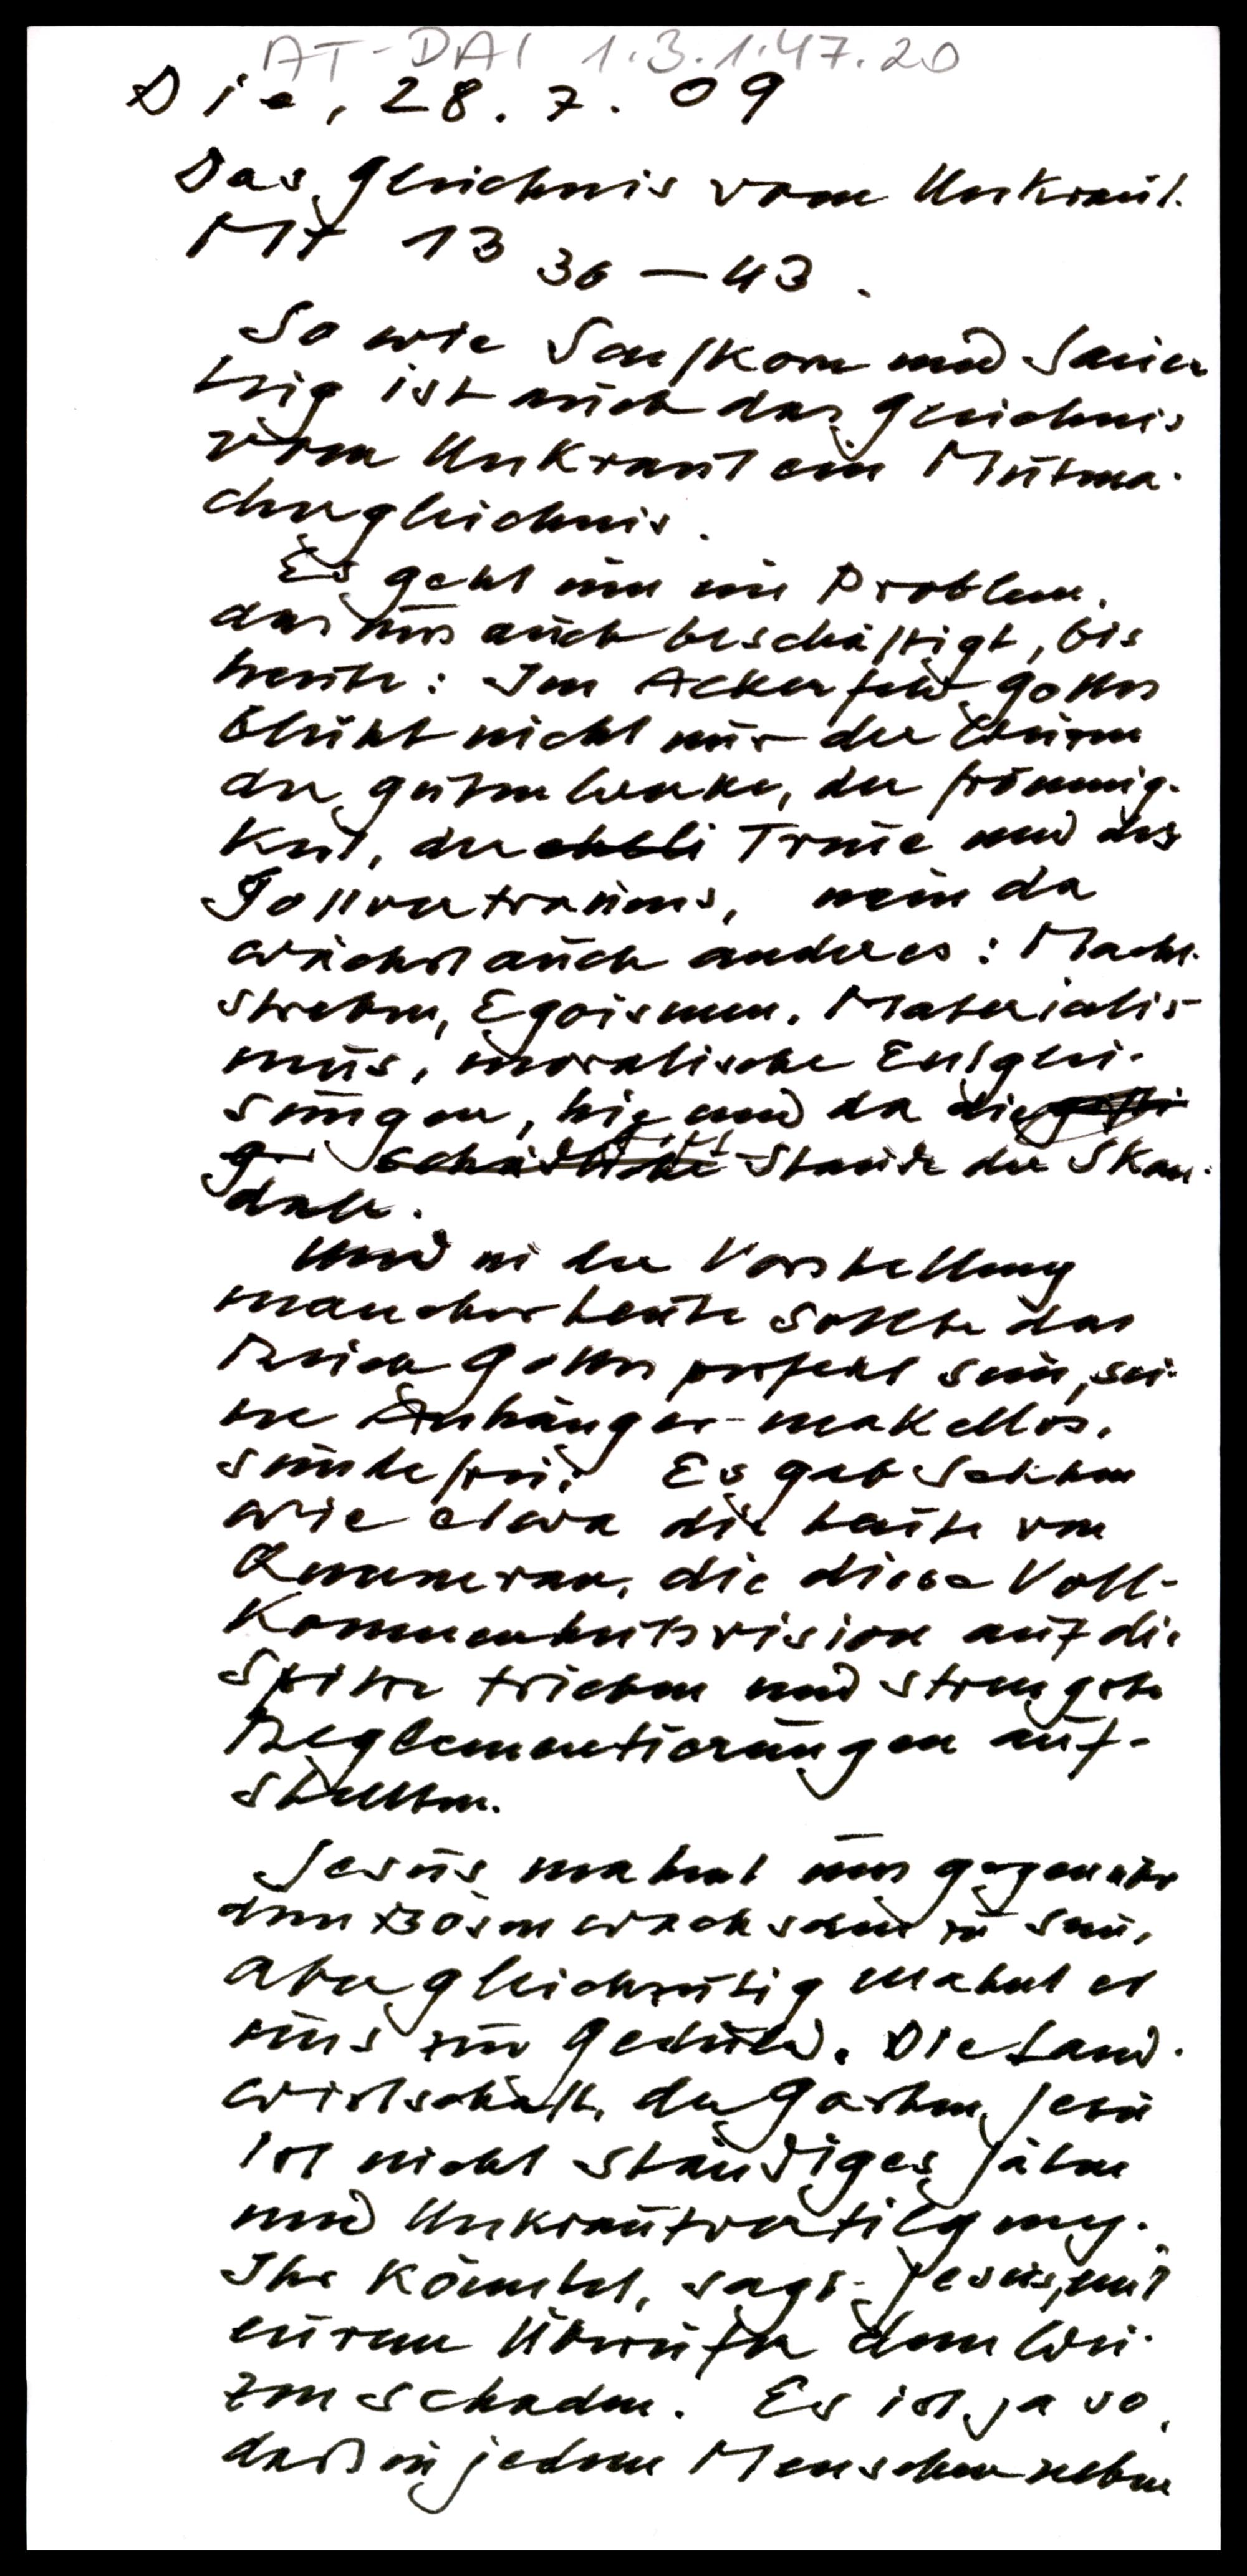 AT-DAI 1.3.1.47.20
Die, 28. 7. 09
Das Gleichnis vom Unkraut.
Mt 13 36 — 43.
So wie Senfkorn und Sauer
teig ist auch das Gleichnis
vom Unkraut ein Mutma-
chergleichnis.
Es geht um ein Problem,
das uns auch beschäftigt, bis
heute: Im Ackerfeld Gottes
blüht nicht nur der
der guten Werke, der Frömmig-
keit, der Treue und des
Gottvertrauens, nein da
wächst auch anderes: Macht-
streben, Egoismen, Materialis-
mus, moralische Entglei-
sungen, hie und da die
schädliche Staude der Skan-
dale.
Und in der Vorstellung
mancher Leute sollte das
Reich Gottes perfekt sein, sei-
ne Anhänger makellos,
sündefrei. Es gab Sekten
wie etwa die Leute von
Qumeran, die diese Voll-
kommenheitsvision auf die
Spitze trieben und strengste
Reglementierungen auf-
stellten.
Jesus mahnt uns gegenüber
dem Bösen wachsam zu sein,
aber gleichzeitig mahnt er
uns zur Geduld. Die Land-
wirtschaft, der Garten Jesu
ist nicht ständiges Jäten
und Unkrautvertilgung.
Ihr könntet, sagt Jesus, mit
eurem Übereifer dem Wei-
zen schaden. Es ist ja so,
daß in jedem Menschen neben